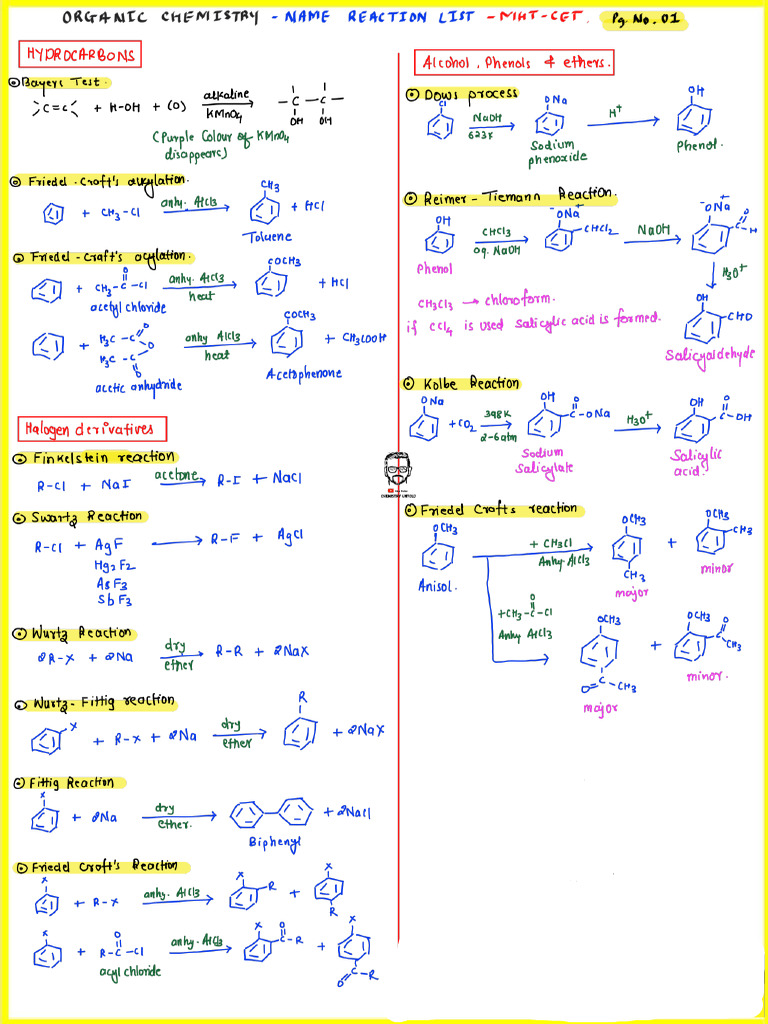 ORGANIC CHEMISTRY - NAME REACTION LIST - MHT-CET. Pg. No. 01
HYDROCARBONS
Bayers Test.
>C=C< + H-OH + (O) alkaline KMnO4 - C - C -
OH OH
(Purple Colour of KMnO4
disappears)
Friedel-Craft's alkylation.
+ CH3-Cl anhy. AlCl3 CH3 + HCl
Toluene
Friedel-Craft's acylation.
+ CH3-C-Cl O anhy. AlCl3 heat COCH3 + HCl
acetyl chloride
+ H3C-C O O H3C-C O anhy AlCl3 heat COCH3 + CH3COOH
acetic anhydride Acetophenone
Halogen derivatives
Finkelstein reaction
R-Cl + NaI acetone R-I + NaCl
Swartz Reaction
R-Cl + AgF R-F + AgCl
Hg2F2
AsF3
SbF3
Wurtz Reaction
2R-X + 2Na dry ether R-R + 2NaX
Wurtz-Fittig reaction
X + R-X + 2Na dry ether R + 2NaX
Fittig Reaction
X + 2Na dry ether. + 2NaCl
Biphenyl
Friedel Craft's Reaction
X + R-X anhy. AlCl3 X R + X R
X + R-C-Cl O anhy. AlCl3 X O C-R + X O=C-R
acyl chloride
Alcohol, Phenols & ethers.
Dows process
Cl NaOH 623K ONa H+ OH
Sodium
phenoxide
Phenol.
Reimer-Tiemann Reaction.
OH CHCl3 aq. NaOH -ONa+ CHCl2 NaOH -ONa+ O C-H
Phenol
H3O+
CH3Cl3 → chloroform.
if CCl4 is used salicylic acid is formed.
OH CHO
Salicyaldehyde
Kolbe Reaction
ONa + CO2 398K 2-6atm OH O C-ONa H3O+ OH O C-OH
Sodium
Salicylate
Salicylic
acid.
CHEMISTRY UNTOLD
Friedel Crafts reaction
OCH3 + CH3Cl Anhy. AlCl3 OCH3 CH3 + OCH3 CH3
Anisol.
major
minor
+CH3-C-Cl O
Anhy AlCl3
OCH3 O=C-CH3 + OCH3 O C CH3
major
minor.